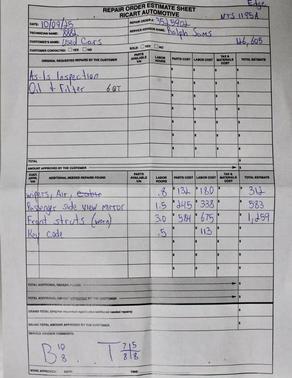 REPAIR ORDER ESTIMATE SHEET
RICART AUTOMOTIVE
Edge
DATE: 10/09/25
REPAIR ORDER #
TECHNICIAN NAME:
SERVICE ADVISOR NAME: Ralph Sams
CUSTOMER'S NAME: Used Cars
46,605
CUSTOMER CONTACTED: YES NO
SOLD: YES NO
ORIGINAL REQUESTED REPAIRS BY THE CUSTOMER
PARTS AVAILABLE Y/N
LABOR HOURS
PARTS COST
LABOR COST
TAX & MATERIALS COST
TOTAL ESTIMATE
As-Is Inspection
Oil + Filter 6 QT
TOTAL
AMOUNT APPROVED BY THE CUSTOMER
ADDITIONAL NEEDED REPAIRS FOUND
PARTS AVAILABLE Y/N
LABOR HOURS
PARTS COST
LABOR COST
TAX & MATERIALS COST
TOTAL ESTIMATE
wipers, Air, .8 $132 $180 $312
Passenger side view mirror 1.5 $245 $338 $583
Front struts (worn) 3.0 $584 $675 $1,259
Key code .5 $113
TOTAL ADDITIONAL
TOTAL ADDITIONAL AMOUNT APPROVED BY THE CUSTOMER
GRAND TOTAL
GRAND TOTAL AMOUNT APPROVED BY THE CUSTOMER
SERVICE ADVISOR COMMENTS:
B 10 8 T 7|5 8|8
DATE: TIME: